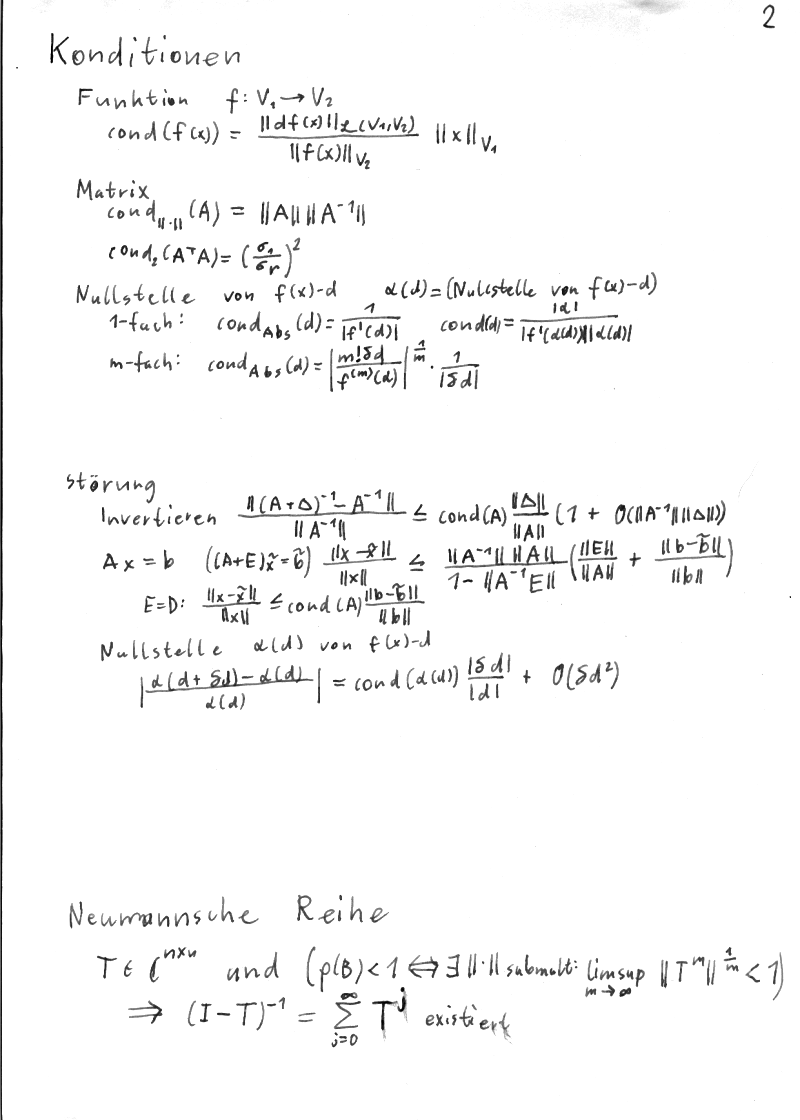 2
Konditionen
Funktion f: V₁ → V₂
cond(f(x)) = ||df(x)||_ℒ(V₁,V₂) / ||f(x)||_V₂ ||x||_V₁
Matrix
cond_||·||(A) = ||A|| ||A⁻¹||
cond₂(AᵀA) = (σ₁/σr)²
Nullstelle von f(x)-d α(d)=(Nullstelle von f(x)-d)
1-fach: cond_Abs(d) = 1/|f'(d)| cond(d) = |d| / |f'(α(d))||α(d)|
m-fach: cond_Abs(d) = |m!δd / f^(m)(d)|^(1/m) · 1/|δd|
Störung
Invertieren ||(A+Δ)⁻¹ - A⁻¹|| / ||A⁻¹|| ≤ cond(A) ||Δ||/||A|| (1 + O(||A⁻¹|| ||Δ||))
Ax = b ((A+E)x̃ = b̃) ||x - x̃||/||x|| ≤ ||A⁻¹|| ||A|| / (1 - ||A⁻¹E||) (||E||/||A|| + ||b-b̃||/||b||)
E=D: ||x-x̃||/||x|| ≤ cond(A) ||b-b̃||/||b||
Nullstelle α(d) von f(x)-d
|(α(d+δd) - α(d)) / α(d)| = cond(α(d)) |δd|/|d| + O(δd²)
Neumannsche Reihe
T ∈ ℂ^(n×n) und (ρ(B)<1 ⇔ ∃ ||·|| submult: limsup_(m→∞) ||T^m||^(1/m) < 1)
⇒ (I-T)⁻¹ = Σ_(j=0)^∞ T^j existiert